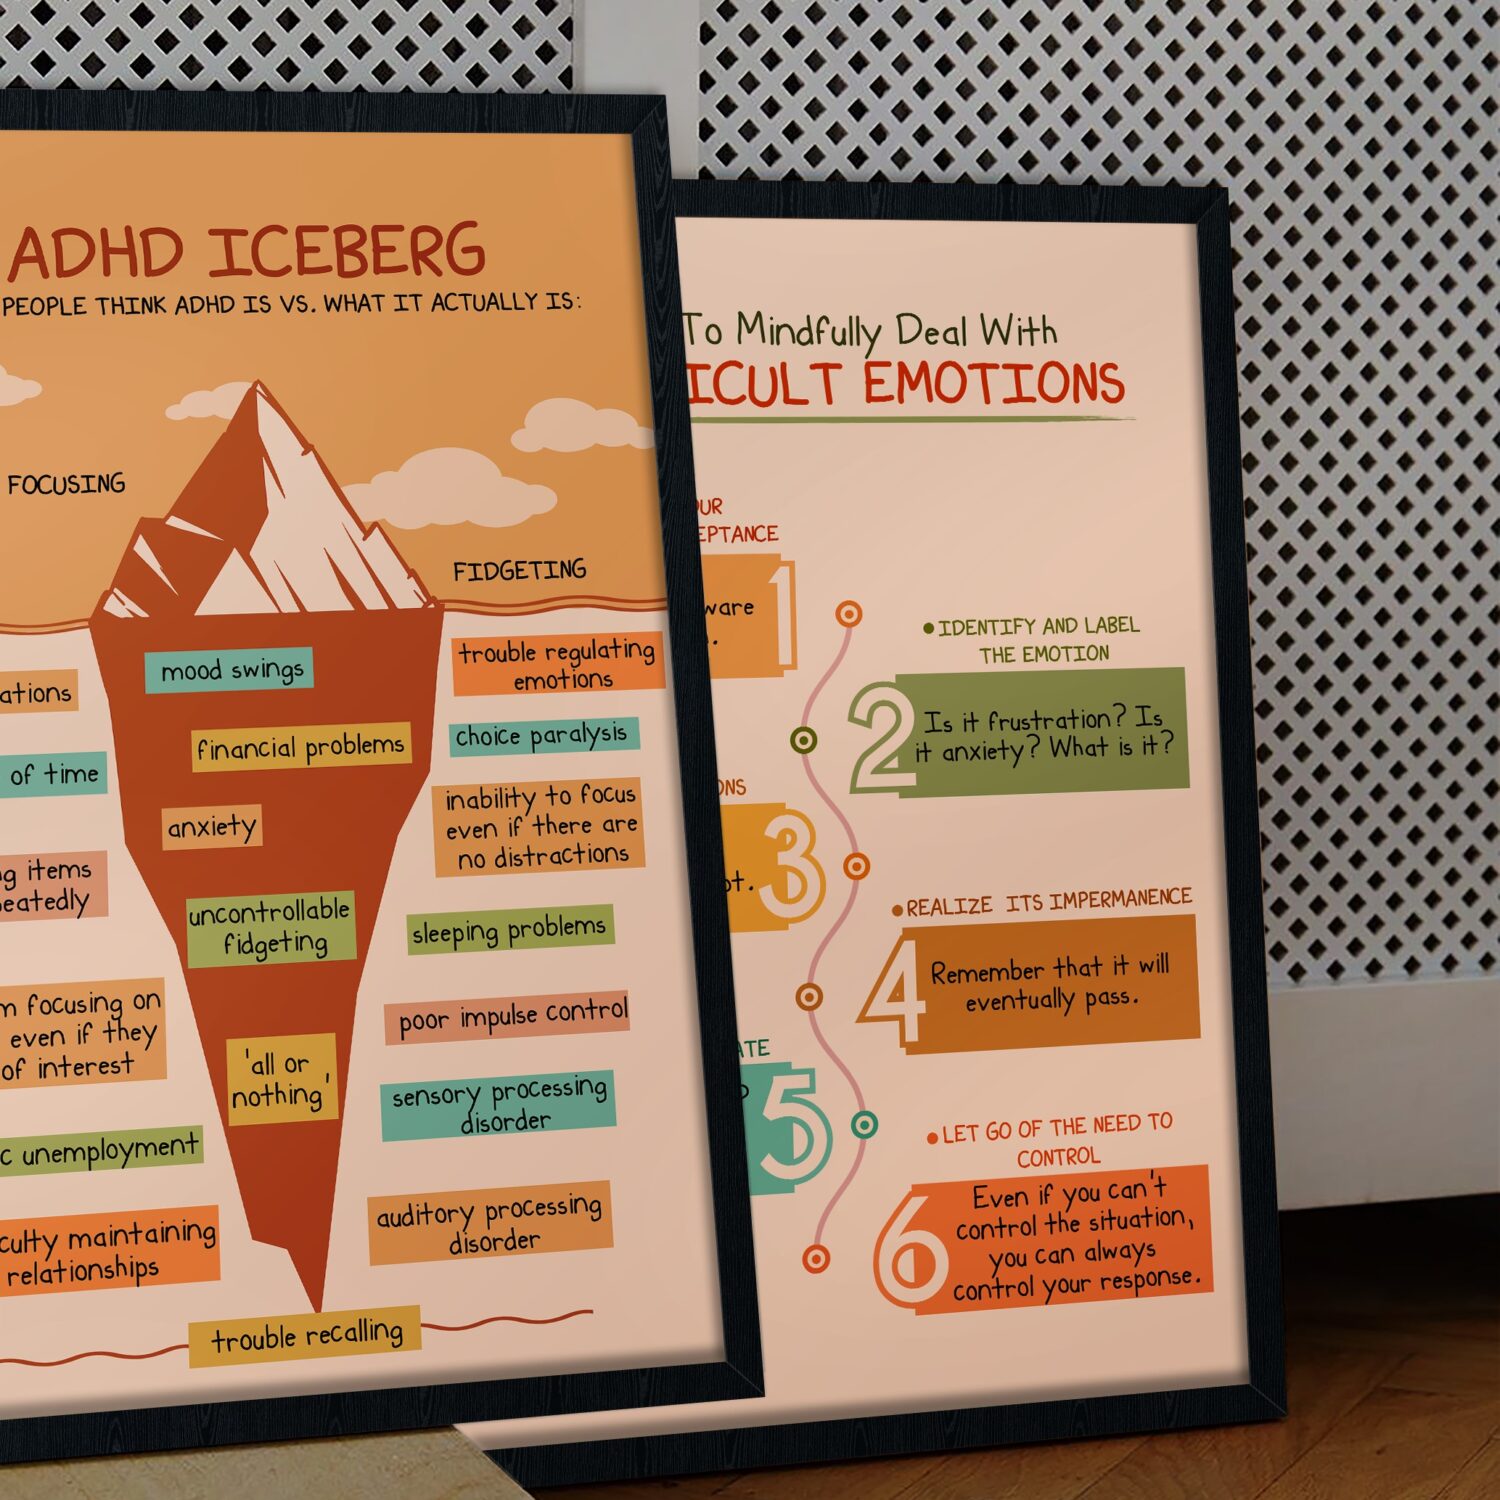 ADHD ICEBERG
PEOPLE THINK ADHD IS VS. WHAT IT ACTUALLY IS:
FOCUSING
FIDGETING
mood swings
trouble regulating
emotions
financial problems
choice paralysis
of time
anxiety
inability to focus
even if there are
no distractions
items
uncontrollable
fidgeting
sleeping problems
focusing on
even if they
of interest
poor impulse control
'all or
nothing'
sensory processing
disorder
unemployment
auditory processing
disorder
maintaining
relationships
trouble recalling
To Mindfully Deal With
EMOTIONS
1
•IDENTIFY AND LABEL
THE EMOTION
2
Is it frustration? Is
it anxiety? What is it?
3
•REALIZE ITS IMPERMANENCE
4
Remember that it will
eventually pass.
5
•LET GO OF THE NEED TO
CONTROL
6
Even if you can't
control the situation,
you can always
control your response.